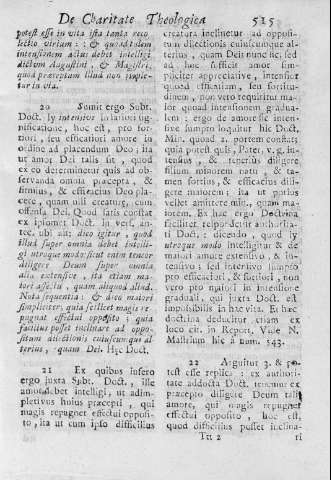 De Charitate Theologica 515
potest esse in vita ista tanta reco
lectio virium: : & quoad talem
intensionem actus debet intelligi
dictum Augustini, & Magistri,
quod præceptum illud non imple
tur in via.
20 Sumit ergo Subt.
Doct. ly intensior in latiori sig
nificatione, hoc est, pro for-
tiori, seu efficaciori amore in
ordine ad placendum Deo; ita
ut amor Dei talis sit, quod
ex eo determinetur quis ad ob-
servanda omnia præcepta, &
firmius, & efficacius Deo pla-
cere, quam ulli creaturæ, cum
offensa Dei. Quod satis constat
ex ipsomet Doct. in vers. an-
tec. ubi ait: dico igitur, quod
illud super omnia debet intelli-
gi utroque modo: sicut enim teneor
diligere Deum super omnia
alia extensive, ita etiam ma-
jori affectu, quam aliquod aliud.
Nota sequentia: & dico majori
simpliciter; quia scilicet magis re-
pugnat affectui opposito; quia
facilius posset inclinare ad oppo-
situm dilectionis cujuscunque al-
terius, quam Dei. Hæc Doct.
21 Ex quibus infero
ergo juxta Subt. Doct., ille
amor debet intelligi, ut adim-
pletivus hujus præcepti, qui
magis repugnet effectui opposi-
to, ita ut cum ipso difficilius
creatura inclinetur ad opposi-
tum dilectionis cujuscunque al-
terius, quam Dei: nunc sic: sed
ad hoc sufficit amor sim-
pliciter appreciative, intensior
quoad efficatiam, seu fortitu-
dinem, non vero requiritur ma-
jor quoad intensionem gradua-
lem: ergo de amore sic inten-
sive sumpto loquitur hic Doct.
Min. quoad 2. partem constat;
quia potest quis, Pater, v. g. in-
tensius, & tenerius diligere
filium minorem natu, & ta-
men fortius, & efficacius dili-
gere majorem: ita ut potius
vellet amittere min., quam ma-
jorem. Ex hac ergo Doctrina
faciliter respondetur authorita-
ti Doct.: dicendo, quod ly
utroque modo intelligitur & de
majori amore extensivo, & in-
tensivo; sed intensivo sumpto
pro efficatiori, & fortiori, non
vero pro majori in intensione
graduali, qui juxta Doct. est
impossibilis in hac vita. Et hæc
doctrina deducitur etiam ex
loco cit. in Report. Vide N.
Mastrium hic à num. 543.
22 Arguitur 3. & po-
test esse replica: ex authori-
tate addocta Doct. tenemur ex
præcepto diligere Deum tali
amore, qui magis repugnet
effectui opposito, hoc est,
quod difficilius posset inclina-
Ttt 2 ri